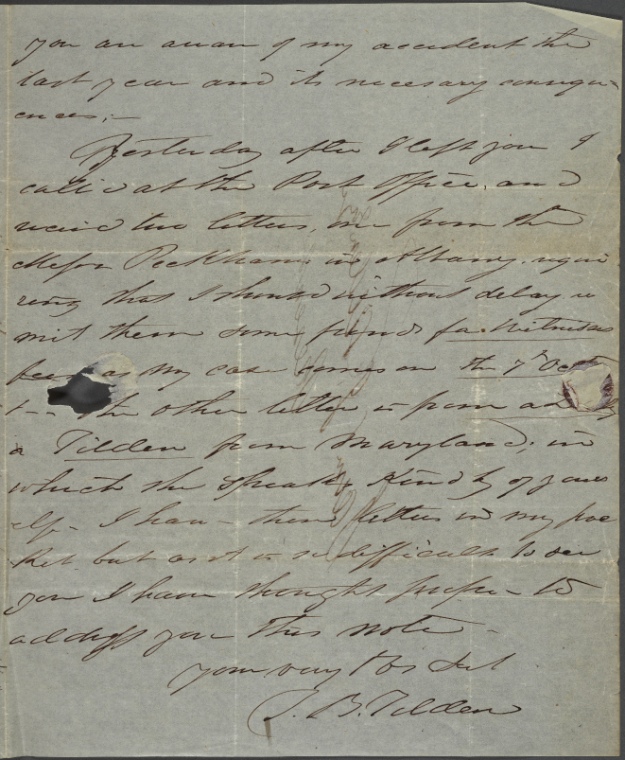 you are aware of my accident the
last year and its necesary consequ-
ences;—
Yesterday after I left you I
call'd at the Post Office, and
receiv'd two letters, one from the
Messrs Peckhams in Albany, requi
ring that I should without delay re
mit them some funds for Witnesses
fees as my case comes on the 7th Oct
The other letter is from
a Tilden from Maryland, in
which she speaks kindly of yours
elf. I have these letters in my poc
ket, but as it is so difficult to see
you I have thought proper to
address you this note
your very Obt Svt
J. B. Tilden